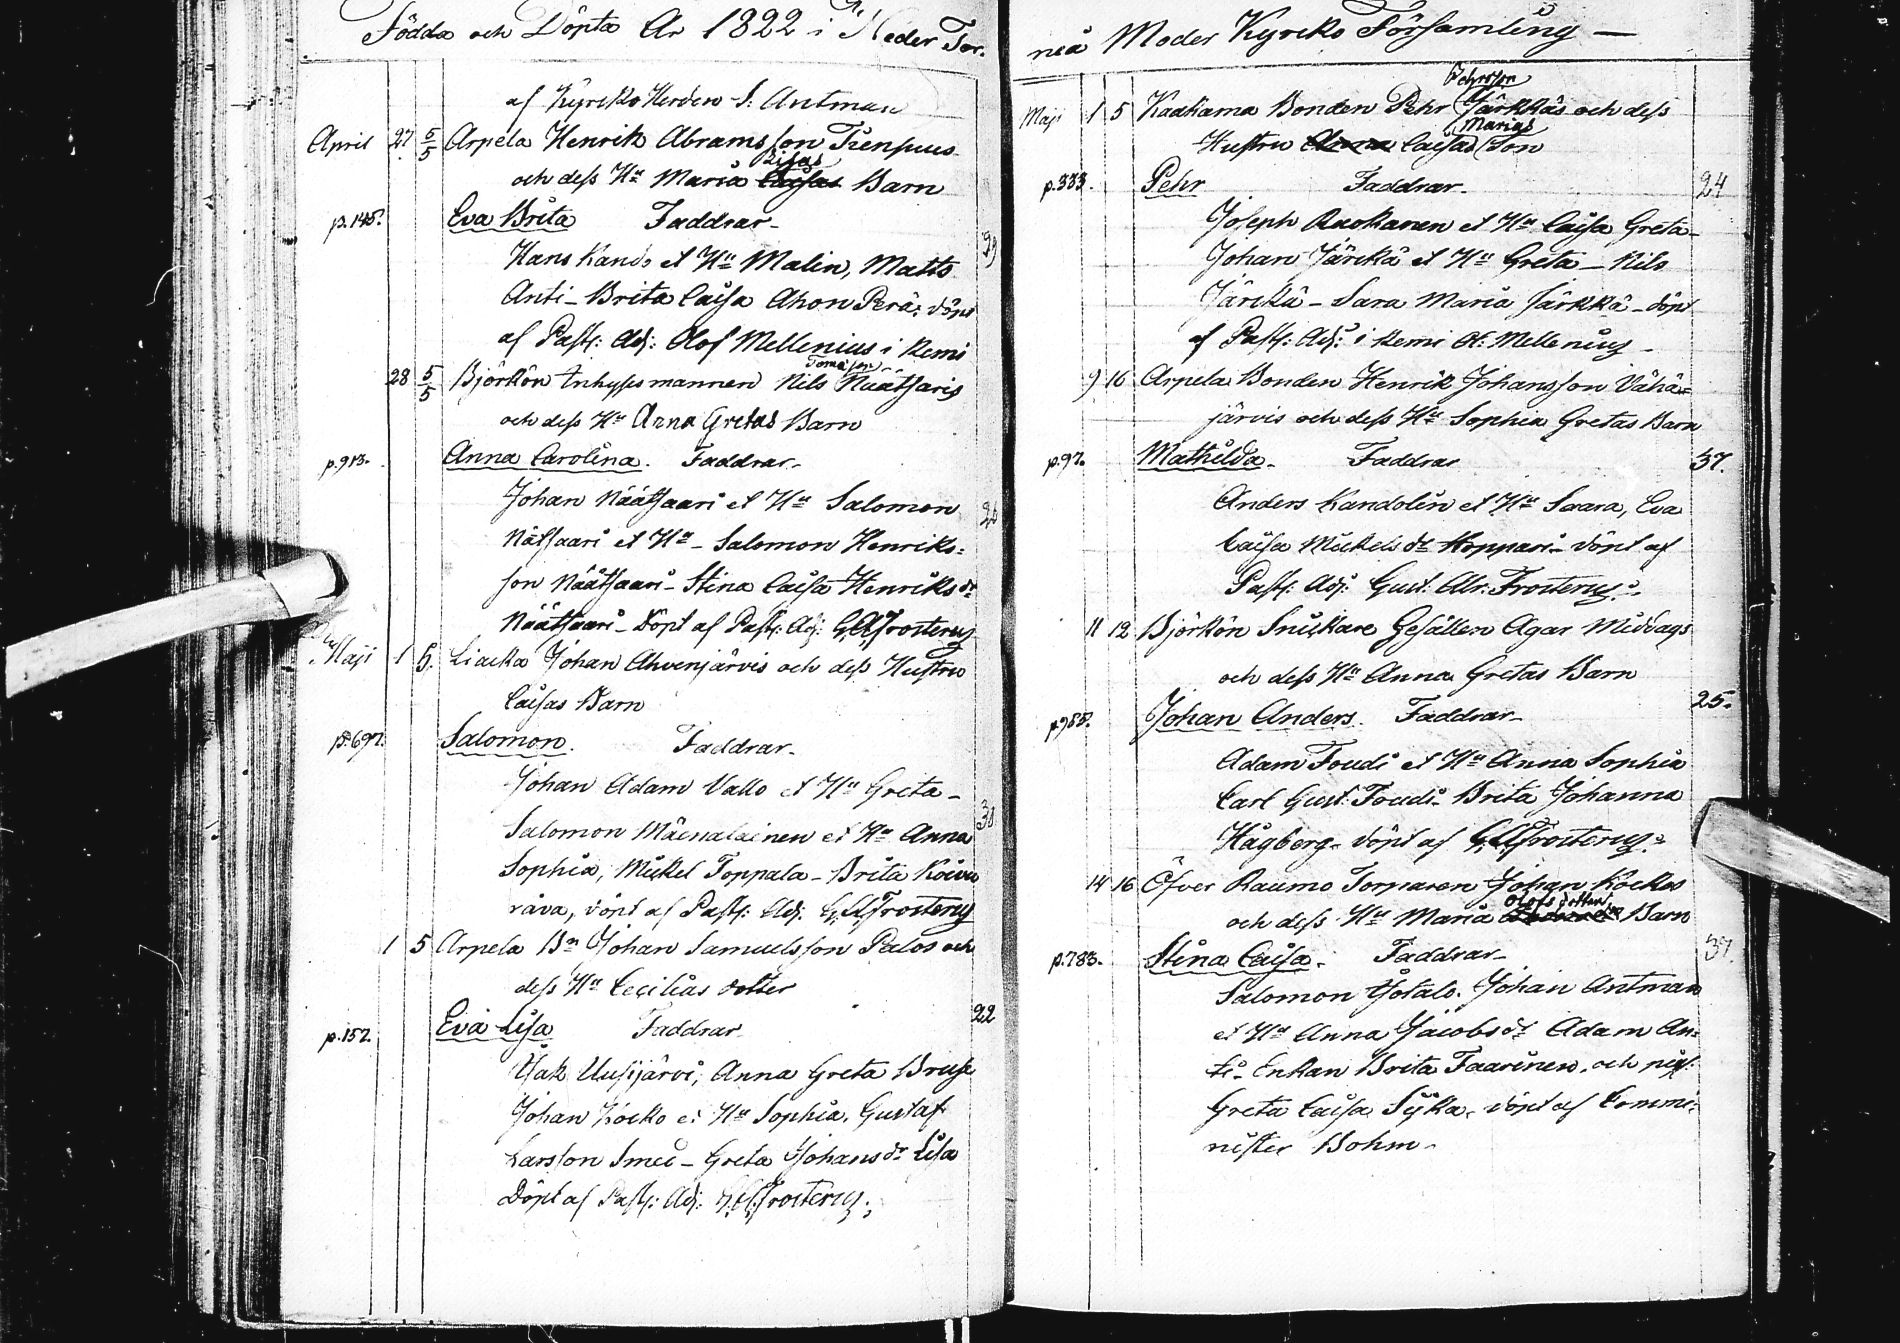 Födda och Döpta År 1822 i Neder Tor-
af Kyrko Herden J: Antman
April 27 5/5 Arpela Henrik Abramsson
Lisas
och dess Hu Maria Caisas Barn
p.145. Eva Brita Faddrar-
29
Hans Kando et Hu Malin, Matts
Anti - Brita Caisa Ahon Perä: döpt
af Past: Adj: Olof Mellenius i Kemi
Tomasson
28 5/5 Björkön Inhyses mannen Nils Näätsaris
och dess Hu Anna Gretas Barn
p.913. Anna Carolina. Faddrar-
Johan Näätsaari et Hu Salomon
Nätsaari et Hu - Salomon Henriks=
son Näätsaari - Stina Caisa Henriksdr
Näätsaari - Döpt af Past: Adj: G.A. Frosterus
Maji 1 5. Liacka Johan Ahvenjärvis och dess Hustru
Caisas Barn
p.697. Salomon. Faddrar-
Johan Adam Vallo et Hu Greta -
30
Salomon Mäenalainen et Hu Anna
Sophia, Mickel Toppala - Brita Koivu
räva, döpt af Past: Adj. G.A. Frosterus
1 5 Arpela Bn Johan Samuelsson Palos och
dess Hu Cecilias dotter
22
p.152. Eva Lisa Faddrar
Isak Uusijärvi, Anna Greta Bruse
Johan Kocko et Hu Sophia. Gustaf
Larsson - Greta Johansdr Lisa
Döpt af Past: Adj: G.A. Frosterus.
neå Moder Kyrko Församling —
Pehrsson
Maji 1 5 Kaakama Bonden Pehr Järkkäs och dess
Marias
Hustru Anna Caisas Son
p.333. Pehr Faddrar- 24
Joseph Ruokanen et Hu Caisa Greta -
Johan Järckä et Hu Greta - Nils
Järckä - Sara Maria Järkkä - döpt
af Past: Adj: i Kemi Ol: Mellenius -
9 16 Arpela Bonden Henrik Johansson Vähä=
järvis och dess Hu Sophia Gretas Barn
p.97. Mathilda - Faddrar 37.
Anders Kandolin et Hu Saara, Eva
Caisa Mickelsdr Hoppari - döpt af
Past: Adj: Gust: Abr: Frosterus.
11 12 Björkön Snickare Gesällen Agar Middags
och dess Hu Anna Gretas Barn
25.
p.955. Johan Anders. Faddrar-
Adam Foudi et Hu Anna Sophia
Carl Gust: Foudi - Brita Johanna
Hågberg - döpt af G.A. Frosterus.
14 16 Öfver Raumo Torparen Johan Kockos
Olofs dotters
och dess Hu Maria Barn
p.783. Stina Caisa. Faddrar- 37.
Salomon Yötalo. Johan Antman
et Hu Anna Jacobsdr Adam An=
ti - Enkan Brita Faarinen. och pig:
Greta Caisa Syka, döpt af Commi=
nister Bohm -